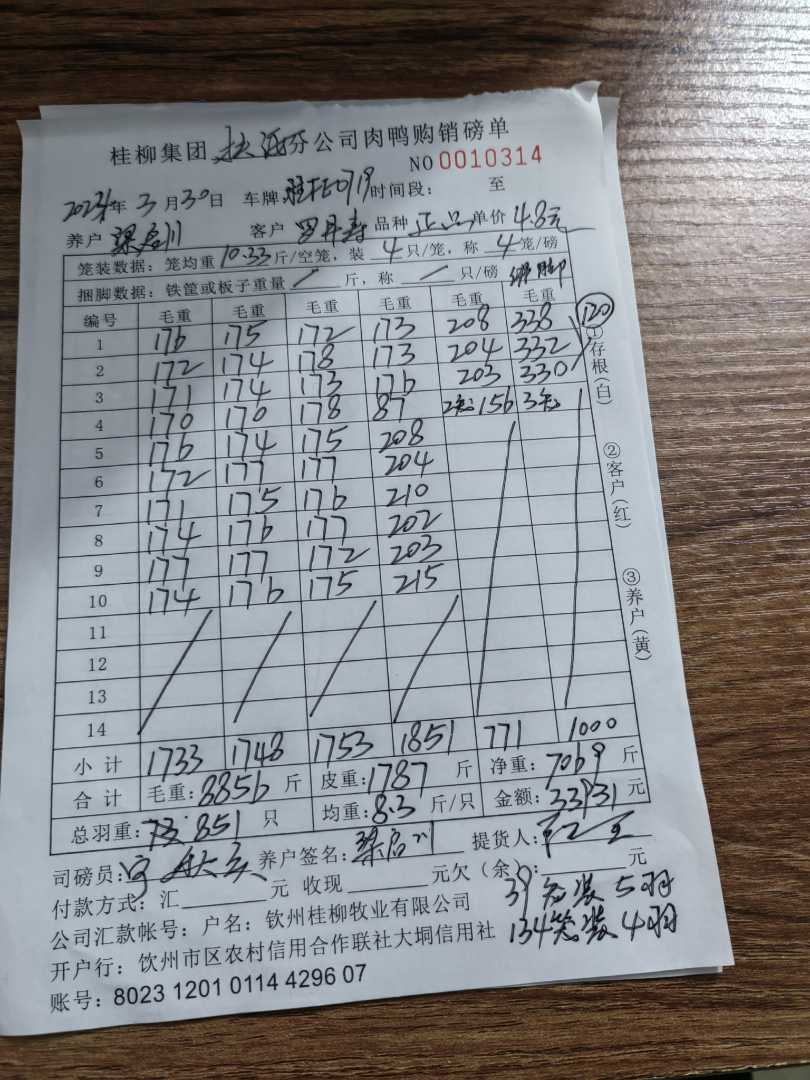 桂柳集团 扶 分公司肉鸭购销磅单
NO 0010314
2024年 3 月 30 日 车牌 时间段： 至
养户 梁启川 客户 罗丹寿 品种 正品 单价 4.8元
笼装数据：笼均重 10.33 斤/空笼，装 4 只/笼，称 4 笼/磅
捆脚数据：铁筐或板子重量 / 斤，称 / 只/磅 绑脚
编号 毛重 毛重 毛重 毛重 毛重 毛重
1 176 175 172 173 208 338 120
2 172 174 178 173 204 332
3 171 174 173 176 203 330
4 170 170 178 87 2笼156 3笼
5 176 174 175 208
6 172 177 177 204
7 171 175 176 210
8 174 176 177 202
9 177 177 172 203
10 174 176 175 215
11
12
13
14
小计 1733 1748 1753 1851 771 1000
合计 毛重：8856 斤 皮重：1787 斤 净重：7069 斤
总羽重： 851 只 均重：8.3 斤/只 金额：33931 元
司磅员： 养户签名：梁启川 提货人：
付款方式：汇 元 收现 元欠（余）： 元
公司汇款帐号：户名：钦州桂柳牧业有限公司
39笼装5羽
开户行：饮州市区农村信用合作联社大垌信用社
134笼装4羽
账号：8023 1201 0114 4296 07
①存根（白）
②客户（红）
③养户（黄）